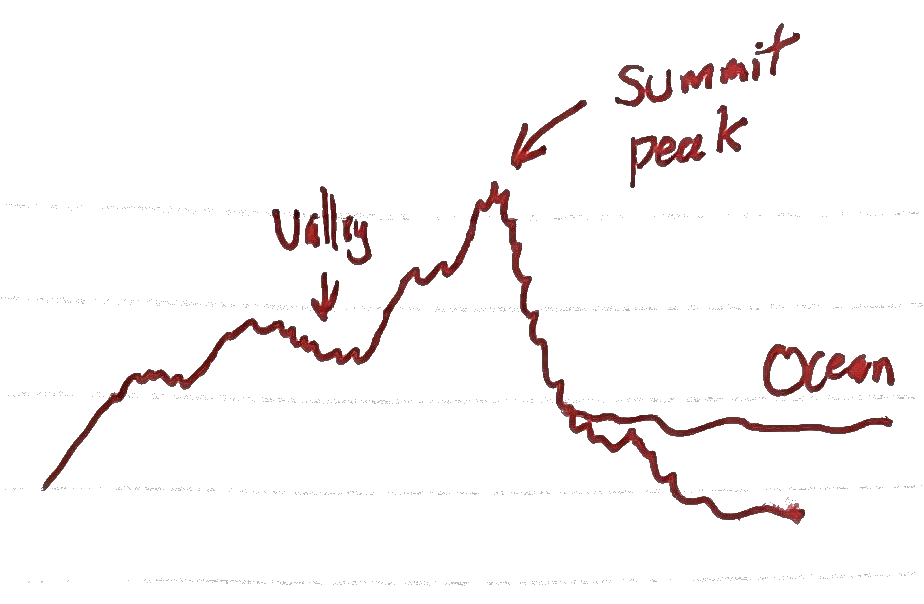 Summit
peak
Valley
Ocean